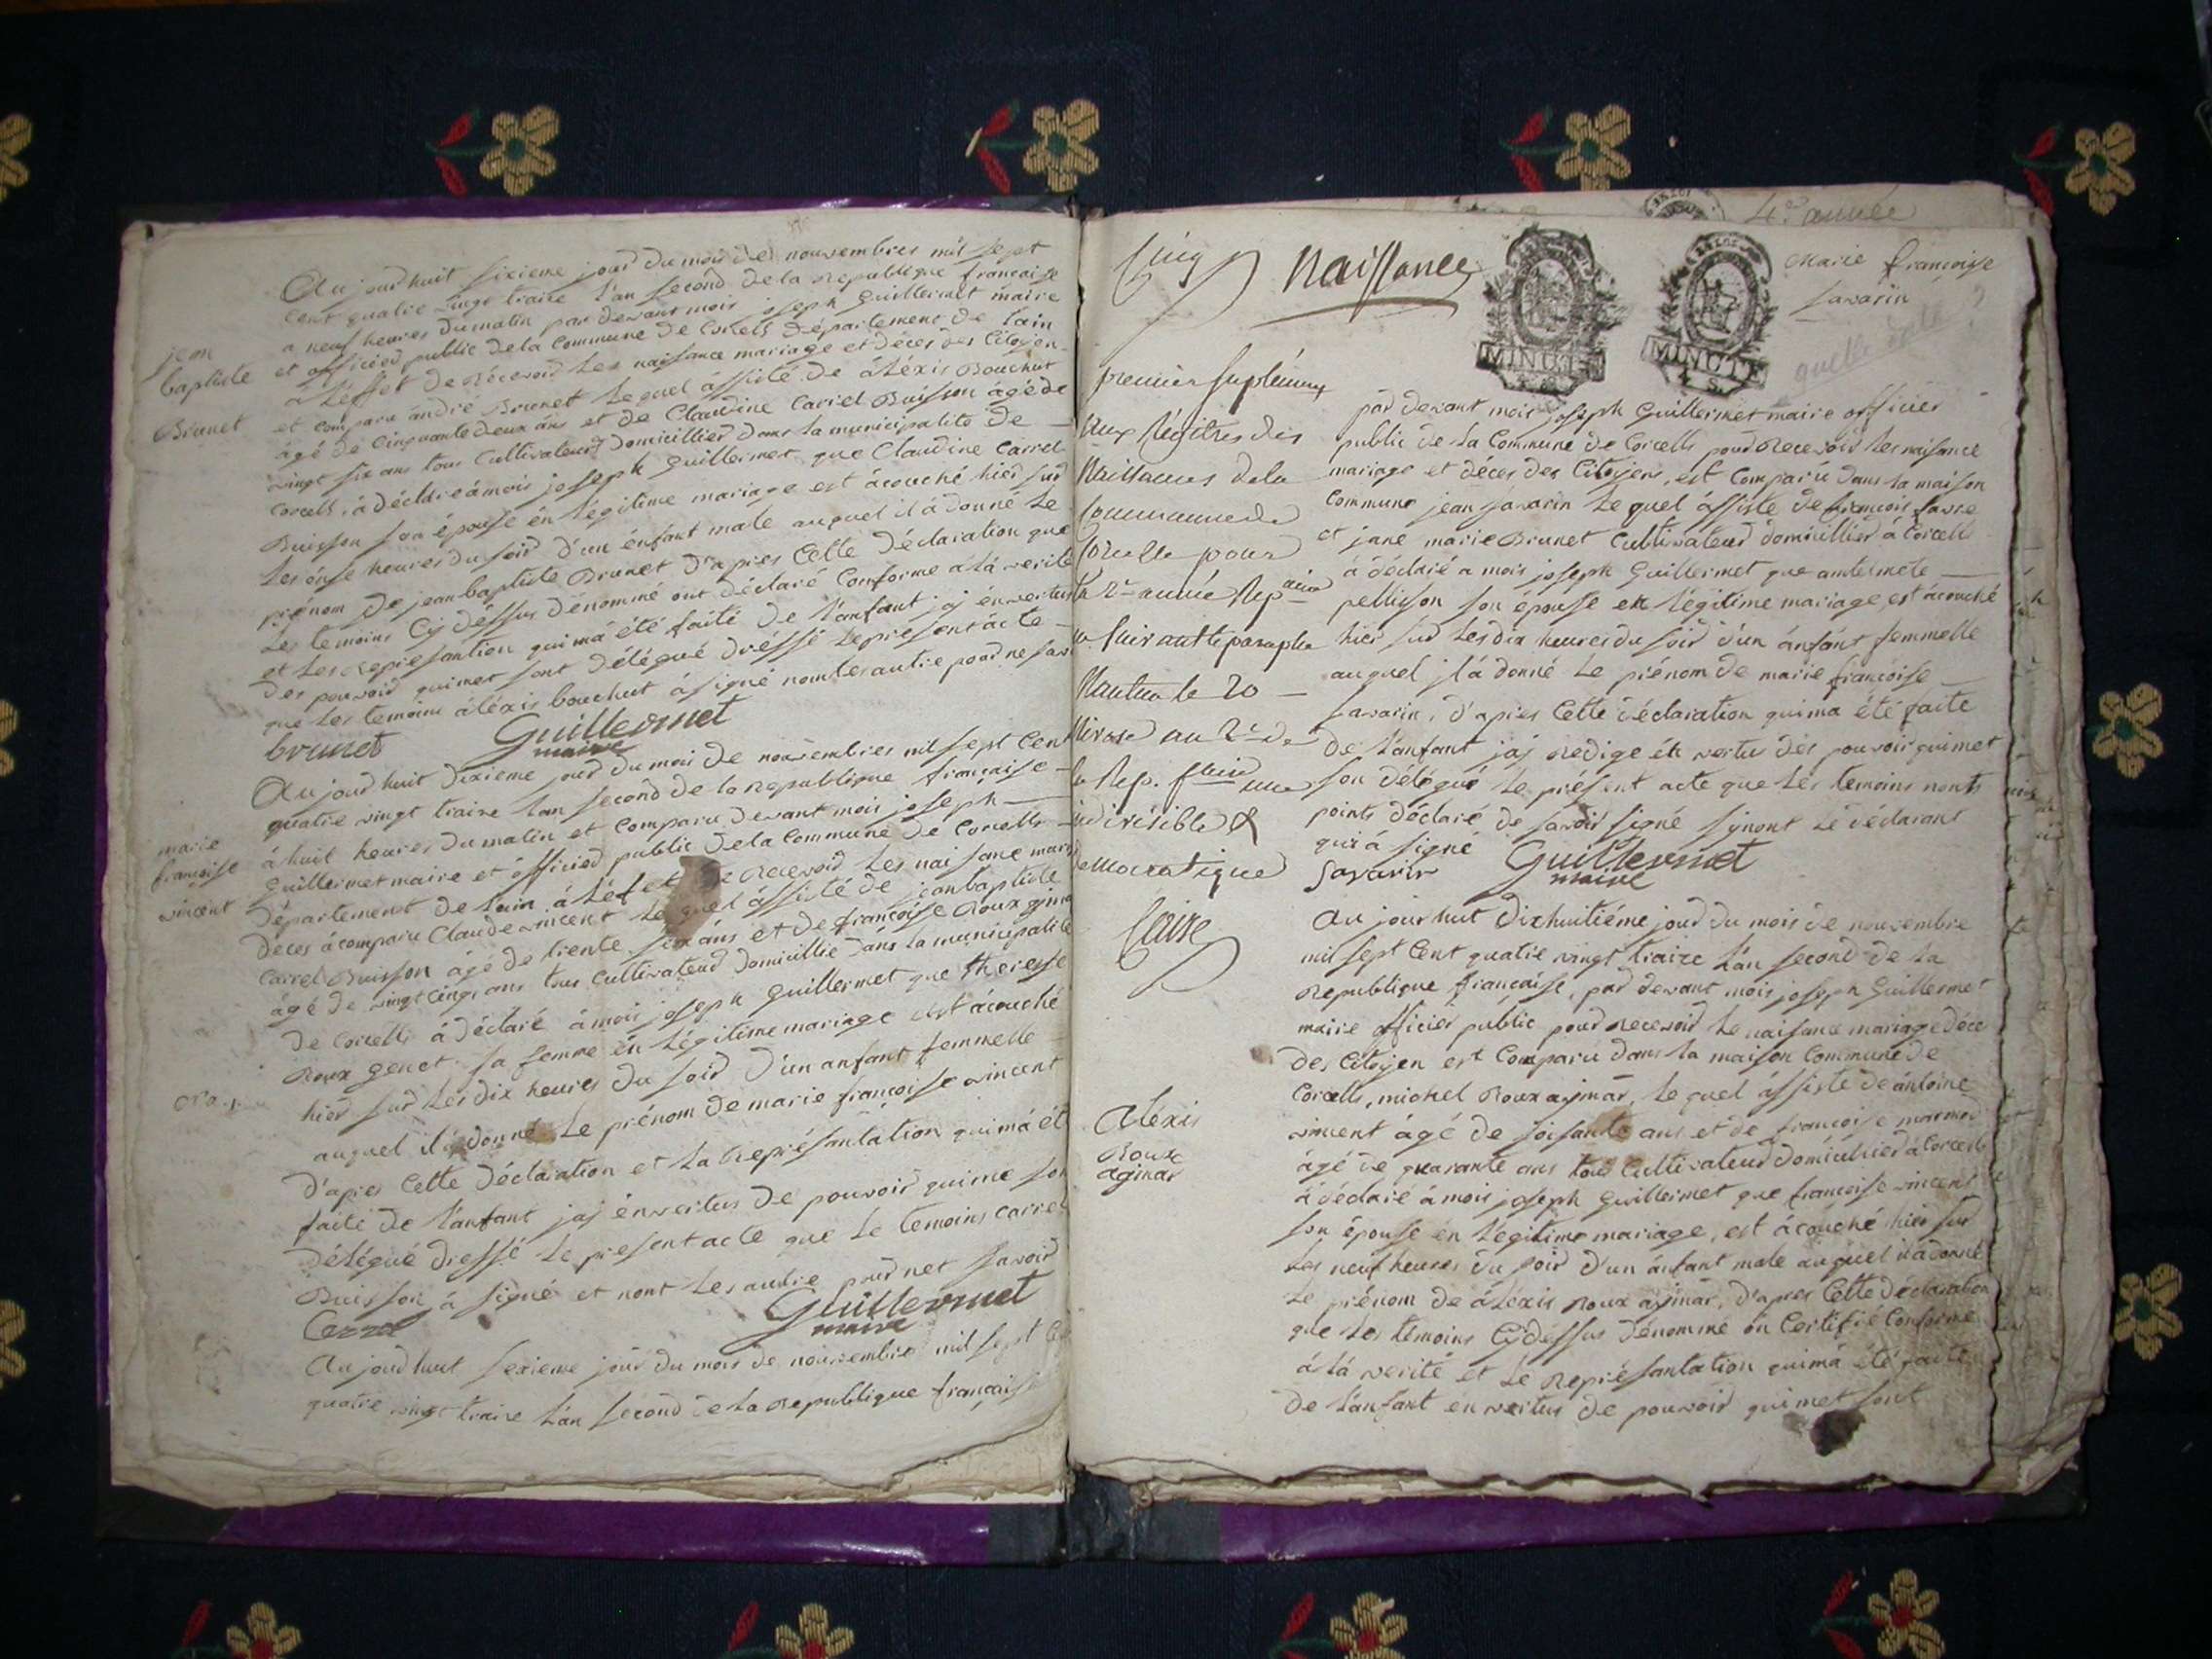 Aujourdhuit sixieme jour du mois de nouvembres mil sept
cent quatre vingt traize l'an second de la republique française
a neuf heures du matin par devant mois joseph Guillermet maire
et officier public de la commune de Corcells département de lain
a l'effet de récevoir les naisance mariage et déces des Citoyen
et comparu andré Brunet lequel assisté de aléxis Bouchut
âgé de cinquante deux ans et de Claudine Carrel Buisson âgé de
vingt six ans tous cultivateur domicillier dans la municipalité de
Corcells, à déclaré à mois joseph Guillermet que Claudine Carrel
Buisson son épouse én légitime mariage est acouché hier sur
les onse heures du soir d'un énfant male auquel il à donné le
prénom de jean baptiste Brunet d'apres cette déclaration que
les temoins cy déssus dénommé ont déclaré conforme à la verité
et les represantion qui ma été faite de l'anfant jaj en vertus
des pouvoir qui met sont délégué dréssé le present acte
que les temoins aléxis bouchut à signé non les autre pour ne sav
jean
baptiste
Brunet
brunet Guillermet
maire
Aujourdhuit dixieme jour du mois de nouvembres mil sept cent
quatre vingt traize lan second de la republique française
à huit heures du matin et comparu devant mois joseph
Guillermet maire et officier public de la commune de Corcells
département de lain à léfet de recevoir les naisane mari
déces à comparu Claude vincent lequel assisté de jean baptiste
Carrel Buisson âgé de trente six ans et de françoise Roux ajmar
âgé de vingt cinq ans tous cultivateur domicillié dans la municipalité
de Corcells à déclaré à mois joseph Guillermet que theresse
Roux genet sa femme én légitime mariage est acouché
hier sur les dix heures du soir d'un anfant femmelle
auquel il à donné le prénom de marie françoise vincent
d'apres cette déclaration et la représantation qui ma ét
faite de l'anfant jaj én vertus de pouvoir qui me son
délégué dressé le present acte que le temoins Carrel
Buisson à signé et nont les autre pour net savoir
marie
françoise
vincent
Carrel Guillermet
maire
Aujourdhuit sexieme jour du mois de nouvembre mil sept
quatre vingt traize l'an second de la republique française
4e année
Cinq Naissances
MINUTE
MINUTE
Marie françoise
Savarin
quelle date ?
premier suplément
aux Régitres des
Naissances de la
Commune de
Corcelle pour
la 2e année Repaine
suivant le paraphe
Nantua le 20
Nivose an 2e de
la Rep. une
indivisible &
democratique
par devant mois joseph Guillermet maire officier
public de la Commune de Corcells pour recevoir les naisance
mariage et déces des Citojens, est comparu dans la maison
commune jean savarin lequel assiste de francois favre
et jane marie Brunet cultivateur domicillier à Corcells
à déclaré a mois joseph Guillermet que antelmete
pellisson son épouse en légitime mariage est acouché
hier sur les dix heures du soir d'un anfant femmelle
auquel jl à donné le prénom de marie françoise
savarin, d'apres cette déclaration qui ma été faite
de l'anfant jaj redige én vertu des pouvoir qui met
son délégué le présent acte que les temoins nonts
points déclaré de savoir signé synont le déclarant
qui à signé
savarin Guillermet
maire
Au jourhuit dixhuitiéme jour du mois de nouvembre
mil sept cent quatre vingt traize l'an second de la
republique française, par devant mois joseph Guillermet
maire officier public pour recevoir le naisance mariage déce
des Citoyen est comparu dans la maison commune de
Corcells, michel Roux ajmar, lequel assiste de antoine
vincent âgé de soisante ans et de françoise marmod
âgé de quarante ans tous cultivateur domicilier à Corcells
à déclaré à mois joseph Guillermet que françoise vincent
son épouse en légitime mariage, est acouché hier sur
les neuf heures du soir d'un anfant male auquel il à donné
le prénom de aléxis Roux ajmar, d'apres cette déclaration
que les temoins cy déssus dénommé on certifié conforme
à la verité et le représantation qui ma été faite
de l'anfant en vertus de pouvoir qui met sont
Alexis
Roux
ajmar